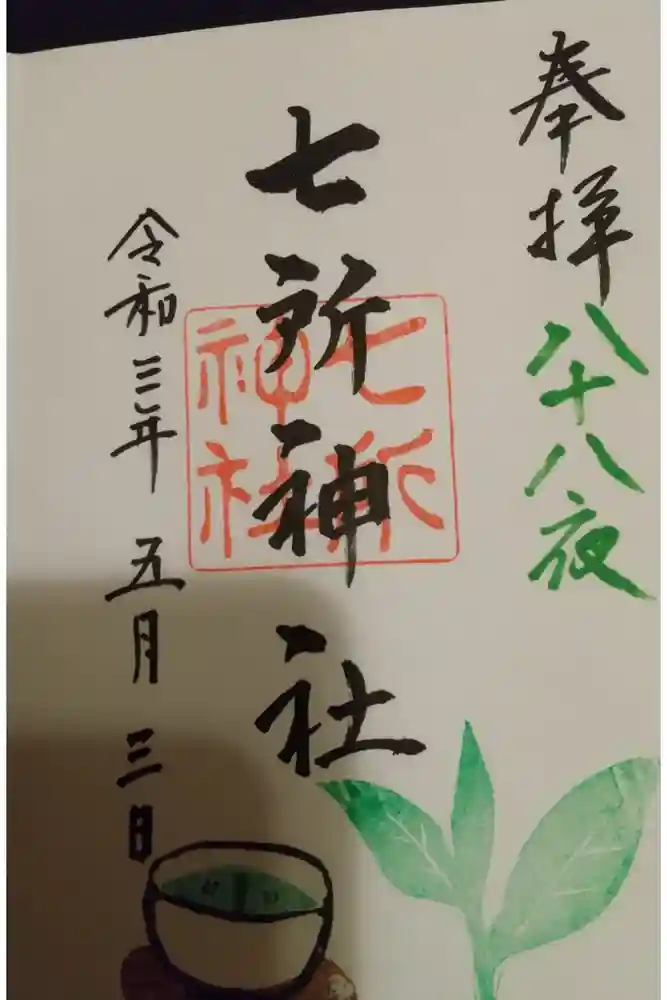 奉拝
八十八夜
七所神社
七所
神社
令和三年 五月 三日